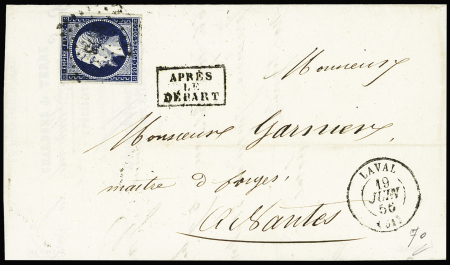 APRÈS
LE
DÉPART
Monsieur
Monsieur Garnier,
maitre d forges,
a Nantes
LAVAL
19
JUIN
56
(51)